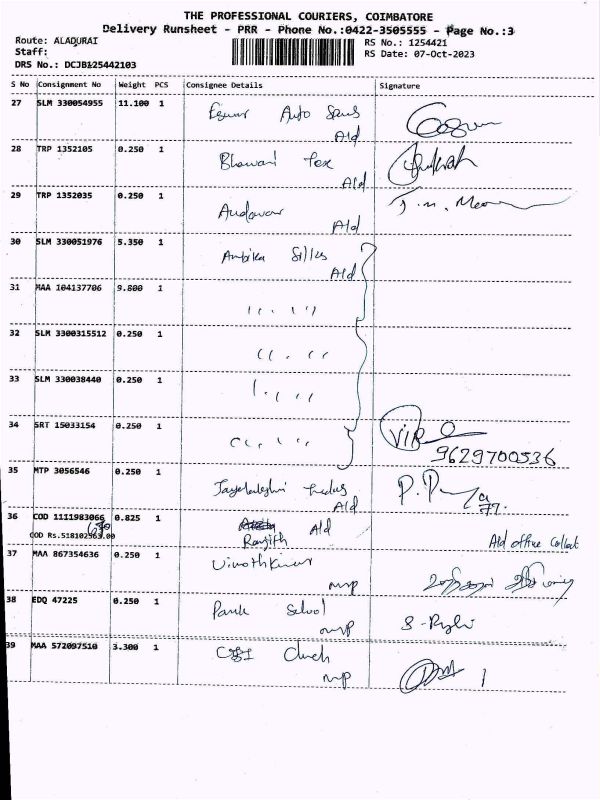 THE PROFESSIONAL COURIERS, COIMBATORE
Delivery Runsheet - PRR - Phone No.:0422-3505555 - Page No.:3
Route: ALADURAI
RS No.: 1254421
Staff:
RS Date: 07-Oct-2023
DRS No.: DCJB125442103
S No Consignment No Weight PCS Consignee Details Signature
27 SLM 330054955 11.100 1 Auto
Ald
28 TRP 1352105 0.250 1 Bhawani Tex
Ald
29 TRP 1352035 0.250 1 Andavar
Ald
30 SLM 330051976 5.350 1 Ambika Silks
Ald
31 MAA 104137706 9.800 1 " "
32 SLM 3300315512 0.250 1 " "
33 SLM 330038440 0.250 1 " "
34 SRT 15033154 0.250 1 " "
9629700536
35 MTP 3056546 0.250 1
Ald
36 COD 1111983066 0.825 1 Ranjith Ald
COD Rs.518102563.00 Ald office Collect
37 MAA 867354636 0.250 1 Vinothkumar
mp
38 EDQ 47225 0.250 1 School
mp
39 MAA 572097510 3.300 1 CSI Church
mp